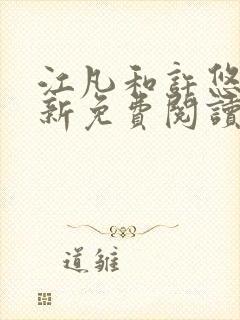 江凡和許悠
新免費閱讀
道雛